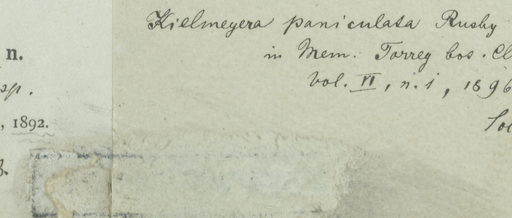 Kielmeyera paniculata Rusby
n.
in Mem. Torrey bos. Cl
sp.
vol. VI, n. 1, 1896
, 1892.